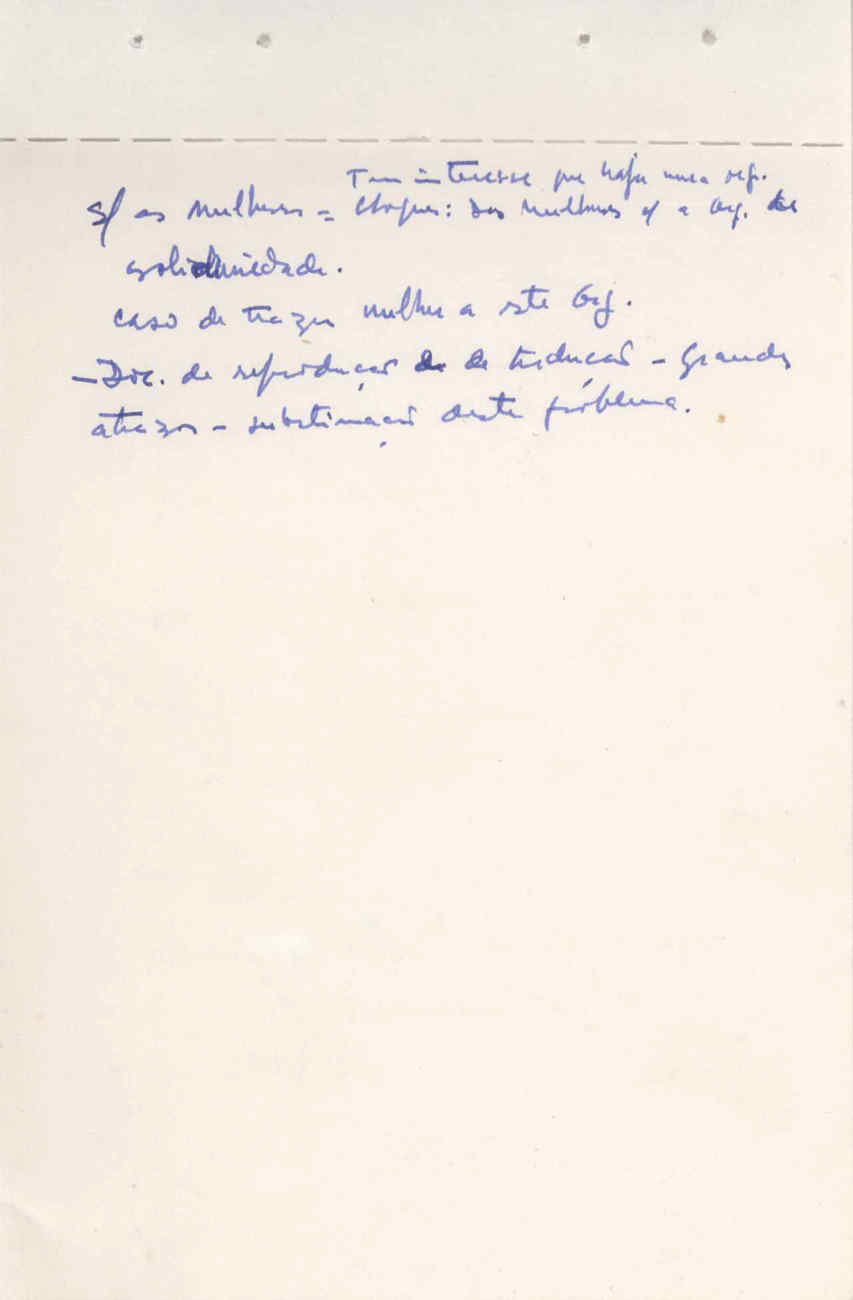 Tem interesse que haja uma rep.
s/ as mulheres = Choques: das mulheres c/ a Org. de
solidariedade.
caso de trazer mulher a este Org.
- Doc. de reprodução de de traducão - Grandes
atrazos - subestimação deste problema.